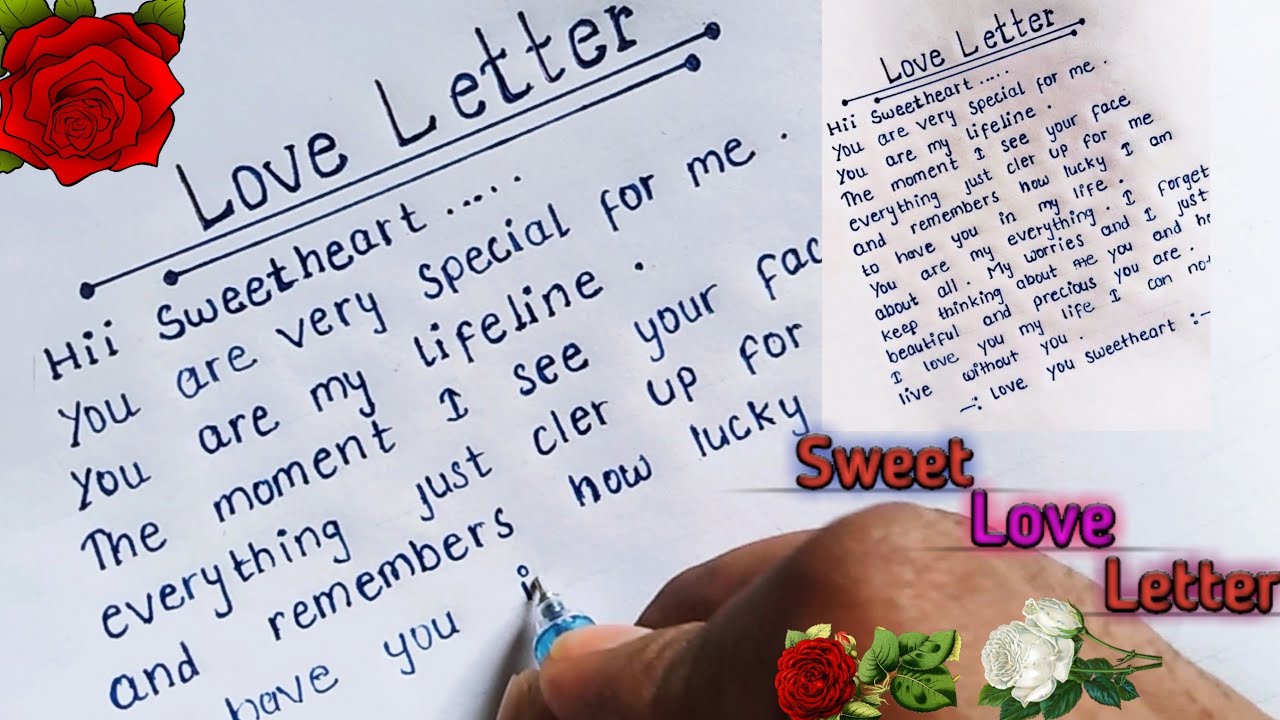 Love Letter
Hii Sweetheart .....
You are very special for me .
You are my lifeline .
The moment I see your fac
everything just cler up for
and remembers how lucky
have you i
Love Letter
Hii Sweetheart .....
You are very special for me .
You are my lifeline .
The moment I see your face
everything just cler up for me
and remembers how lucky I am
to have you in my life .
You are my everything . I forget
about all . My worries and I just
keep thinking about the you and
beautiful and precious you are .
I love you my life I can not
live without you .
-: Love you sweetheart :-
Sweet
Love
Letter